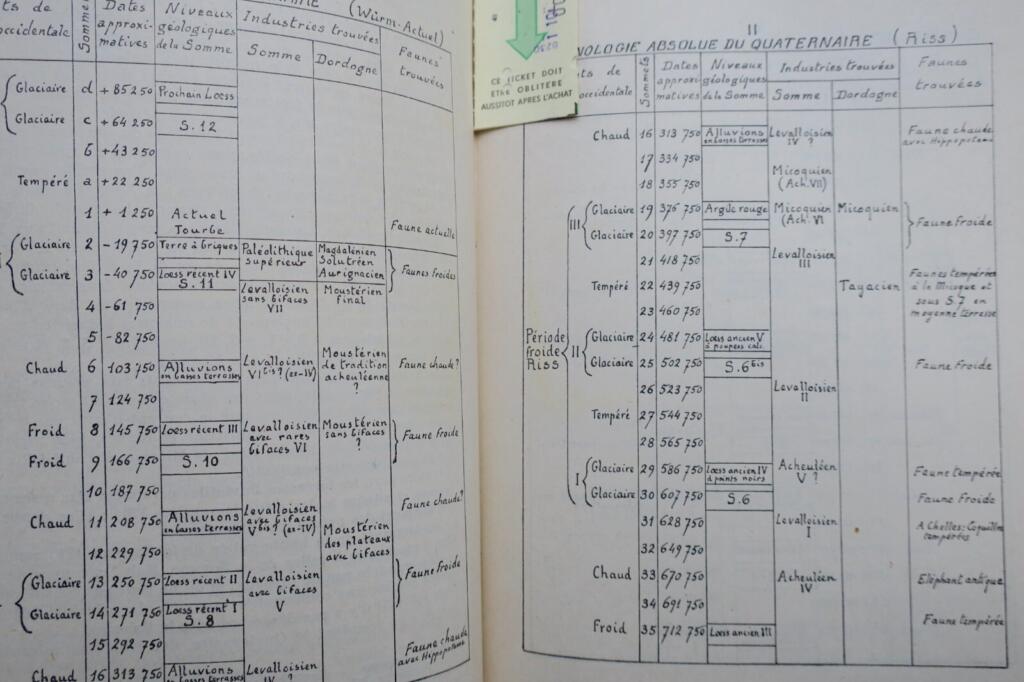 (Würm-Actuel)
ts de
occidentale
Sommets
Dates
approxi-
matives
Niveaux
géologiques
de la Somme
Industries trouvées
Somme
Dordogne
Faunes
trouvées
Glaciaire d +85 250 Prochain Loess
Glaciaire c +64 250 S.12
b +43 250
Tempéré a +22 250
1 +1 250 Actuel
Tourbe
Faune actuelle
Glaciaire 2 -19 750 Terre à briques Paléolithique Magdalénien
supérieur Solutréen
Glaciaire 3 -40 750 Loess récent IV Aurignacien Faunes froides
S.11 Levalloisien Moustérien
sans bifaces final
4 -61 750 VII
5 -82 750
Chaud 6 103 750 Alluvions
en basses terrasses
Levalloisien
VI bis ? (ex-IV)
Moustérien
de tradition
acheuléenne
?
Faune chaude?
7 124 750
Froid 8 145 750 Loess récent III Levalloisien Moustérien Faune froide
avec rares sans bifaces
bifaces VI ?
Froid 9 166 750 S.10
10 187 750
Faune chaude?
Chaud 11 208 750 Alluvions
en basses terrasses
Levalloisien
avec bifaces
V bis ? (ex-IV)
Moustérien
des plateaux
avec bifaces
12 229 750
Glaciaire 13 250 750 Loess récent II Levalloisien Faune froide
avec bifaces
V
Glaciaire 14 271 750 Loess récent I
S.8
15 292 750
Faune chaude
avec Hippopotame
Chaud 16 313 750 Alluvions Levalloisien
CE TICKET DOIT
ETRE OBLITERE
AUSSITOT APRES L'ACHAT
II
NOLOGIE ABSOLUE DU QUATERNAIRE (Riss)
ts de
occidentale
Sommets
Dates
approxi-
matives
Niveaux
géologiques
de la Somme
Industries trouvées
Somme
Dordogne
Faunes
trouvées
Chaud 16 313 750 Alluvions Levalloisien Faune chaude
en basses terrasses IV ? avec Hippopotame
17 334 750
Micoquien
18 355 750 (Ach. VII)
III Glaciaire 19 376 750 Argile rouge Micoquien Micoquien Faune froide
(Ach. VI
Glaciaire 20 397 750 S.7
21 418 750 Levalloisien
III
Tempéré 22 439 750 Tayacien Faunes tempérées
à la Micoque et
sous S.7 en
moyenne terrasse
23 460 750
Période
froide
Riss
II Glaciaire 24 481 750 Loess ancien V
à poupées calc.
Glaciaire 25 502 750 S.6 bis Faune froide
26 523 750 Levalloisien
II
Tempéré 27 544 750
28 565 750
I Glaciaire 29 586 750 Loess ancien IV Acheuléen Faune tempérée
à points noirs V ?
Glaciaire 30 607 750 S.6 Faune froide
31 628 750 Levalloisien A Chelles: Coquilles
I tempérées
32 649 750
Chaud 33 670 750 Acheuléen Eléphant antique
IV
34 691 750
Faune tempérée
Froid 35 712 750 Loess ancien III